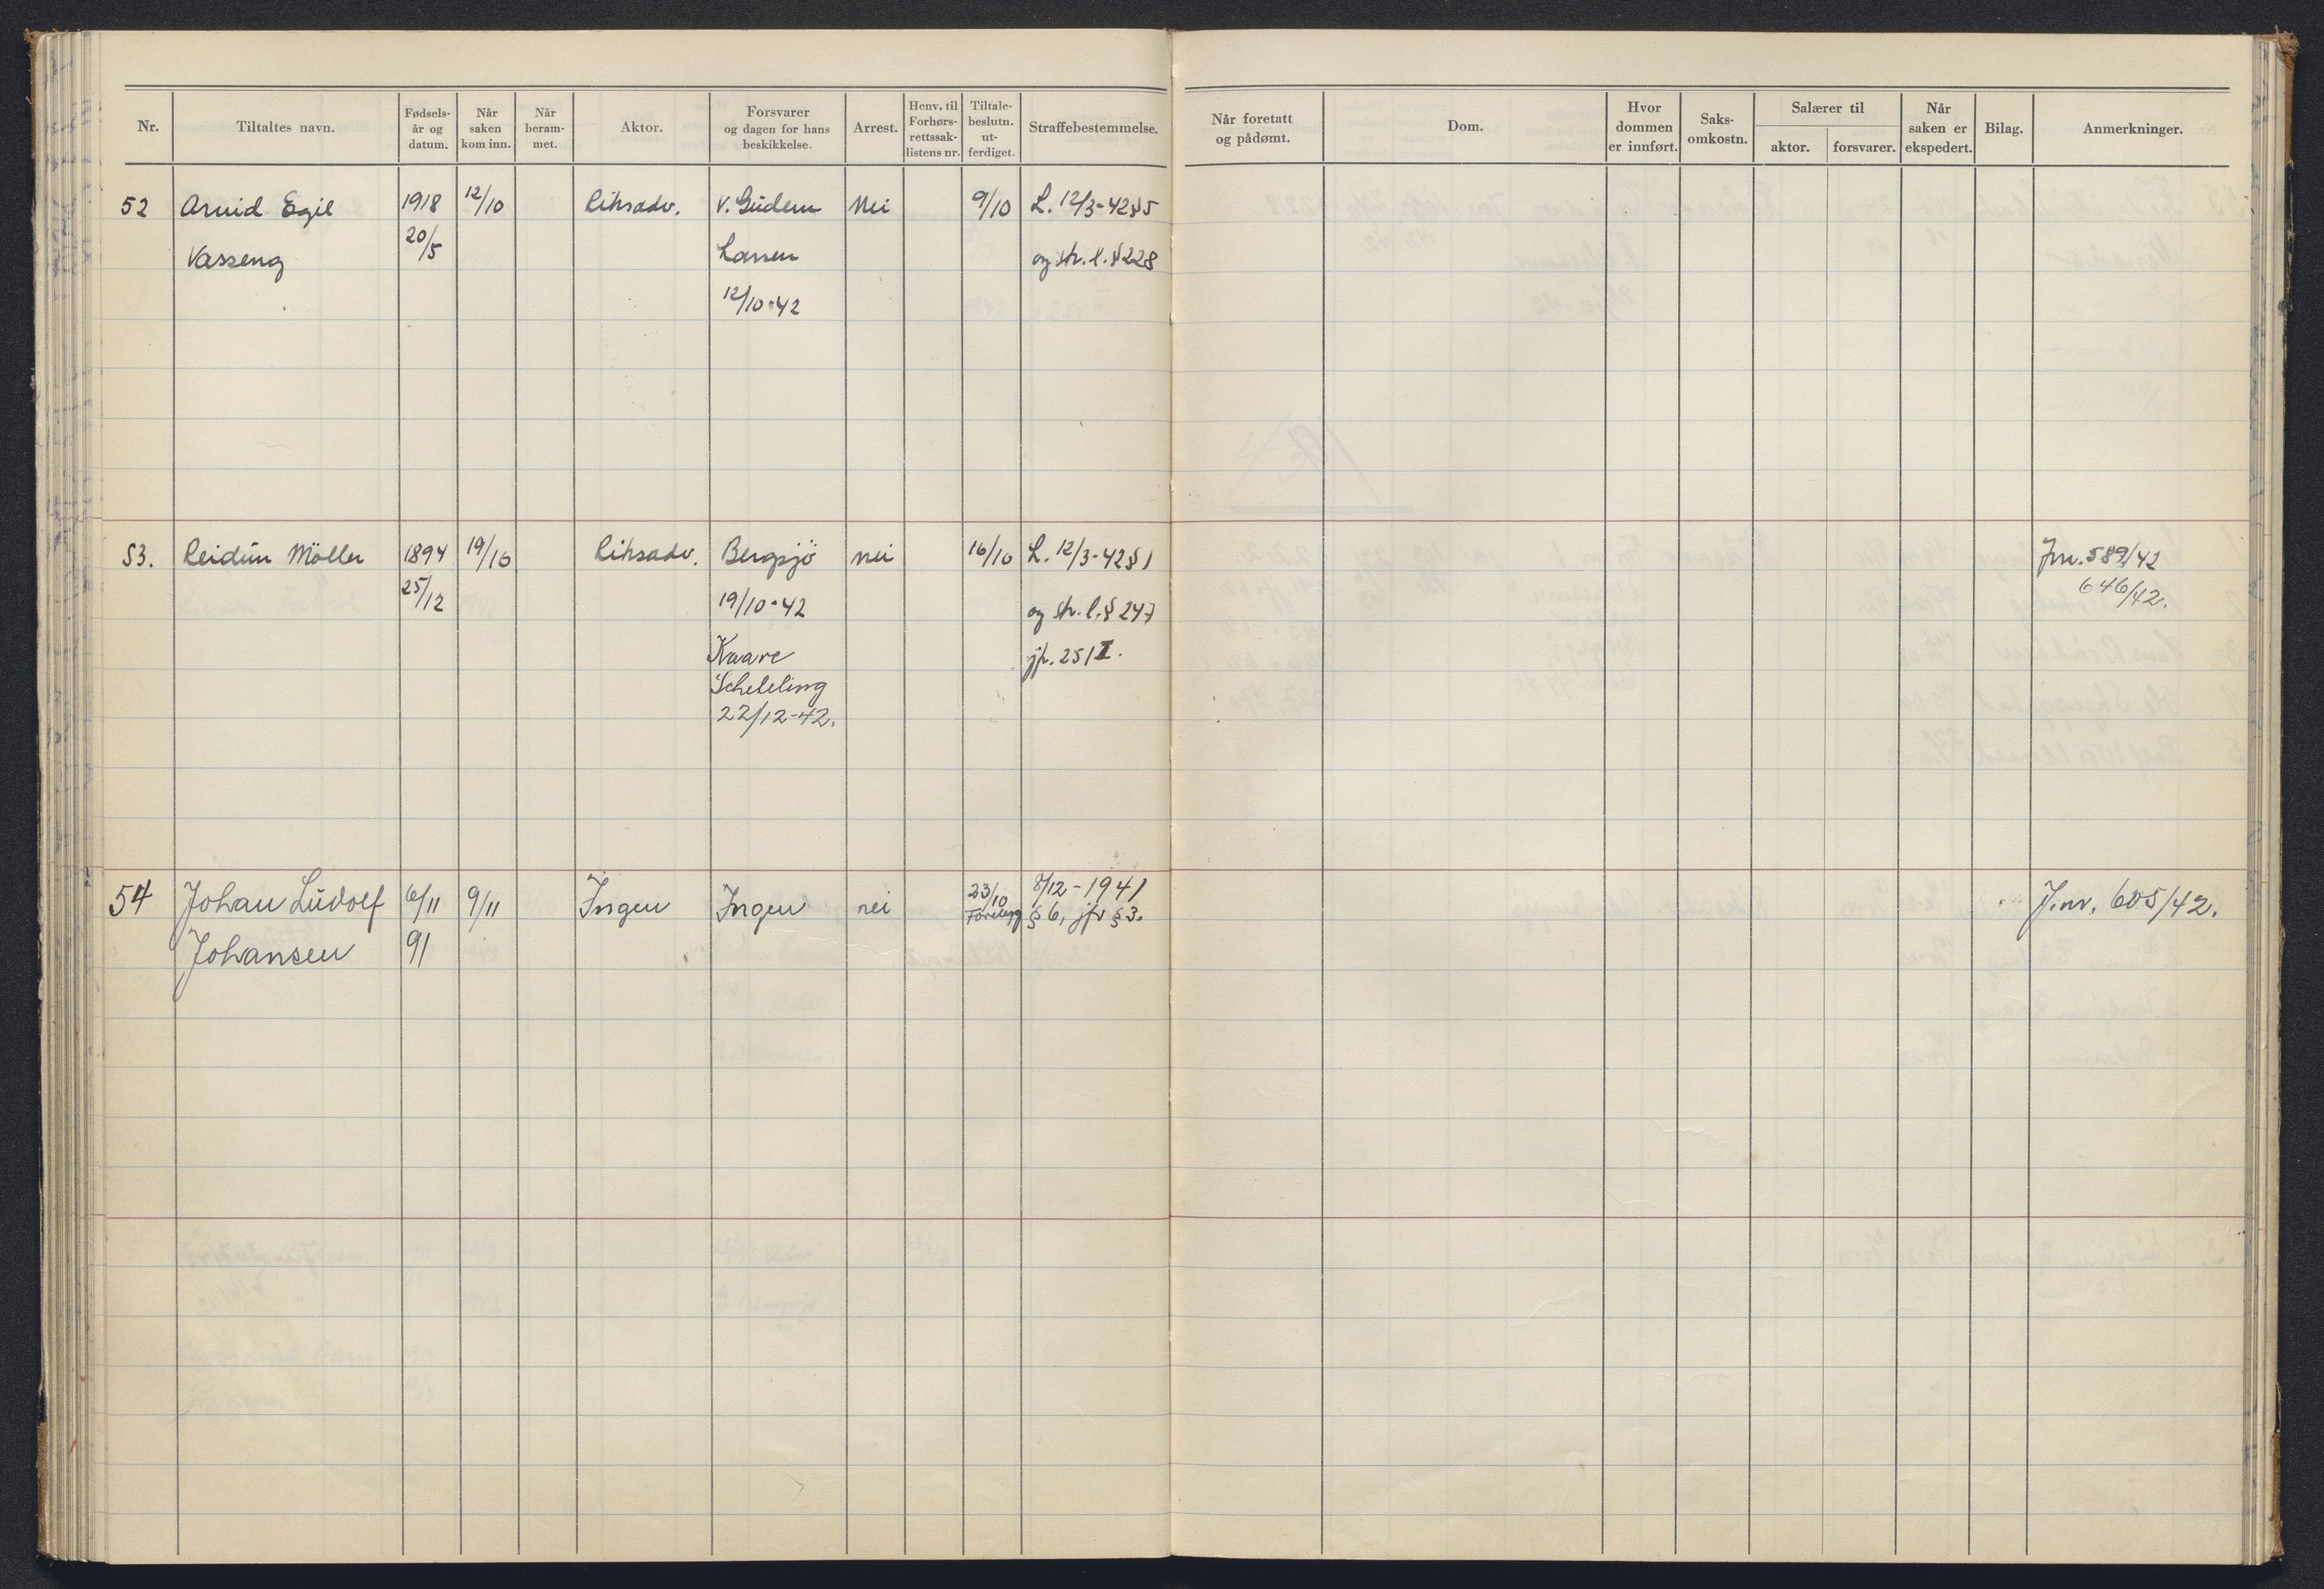 Nr.
Tiltaltes navn.
Fødsels-
år og
datum.
Når
saken
kom inn.
Når
beram-
met.
Aktor.
Forsvarer
og dagen for hans
beskikkelse.
Arrest.
Henv. til
Forhørs-
rettssak-
listens nr.
Tiltale-
beslutn.
ut-
ferdiget.
Straffebestemmelse.
Når foretatt
og pådømt.
Dom.
Hvor
dommen
er innført.
Saks-
omkostn.
Salærer til
aktor.
forsvarer.
Når
saken er
ekspedert.
Bilag.
Anmerkninger.
52 Arvid Egil 1918 12/10 Riksadv. V. Gudem Nei 9/10 L. 12/3-42 § 5
Vasseng 20/5 Larsen og str. l. § 228
12/10-42
53. Reidun Möller 1894 19/10 Riksadv. Bergsjö nei 16/10 L. 12/3-42 § 1 Jnr. 589/42
25/12 19/10-42 og str. l. § 247 646/42.
Kaare jfr. 251 I.
Schelling
22/12-42.
54 Johan Ludolf 6/11 9/11 Ingen Ingen nei 23/10 8/12-1941 J.nr. 605/42.
Forelegg § 6, jfr § 3.
Johansen 91